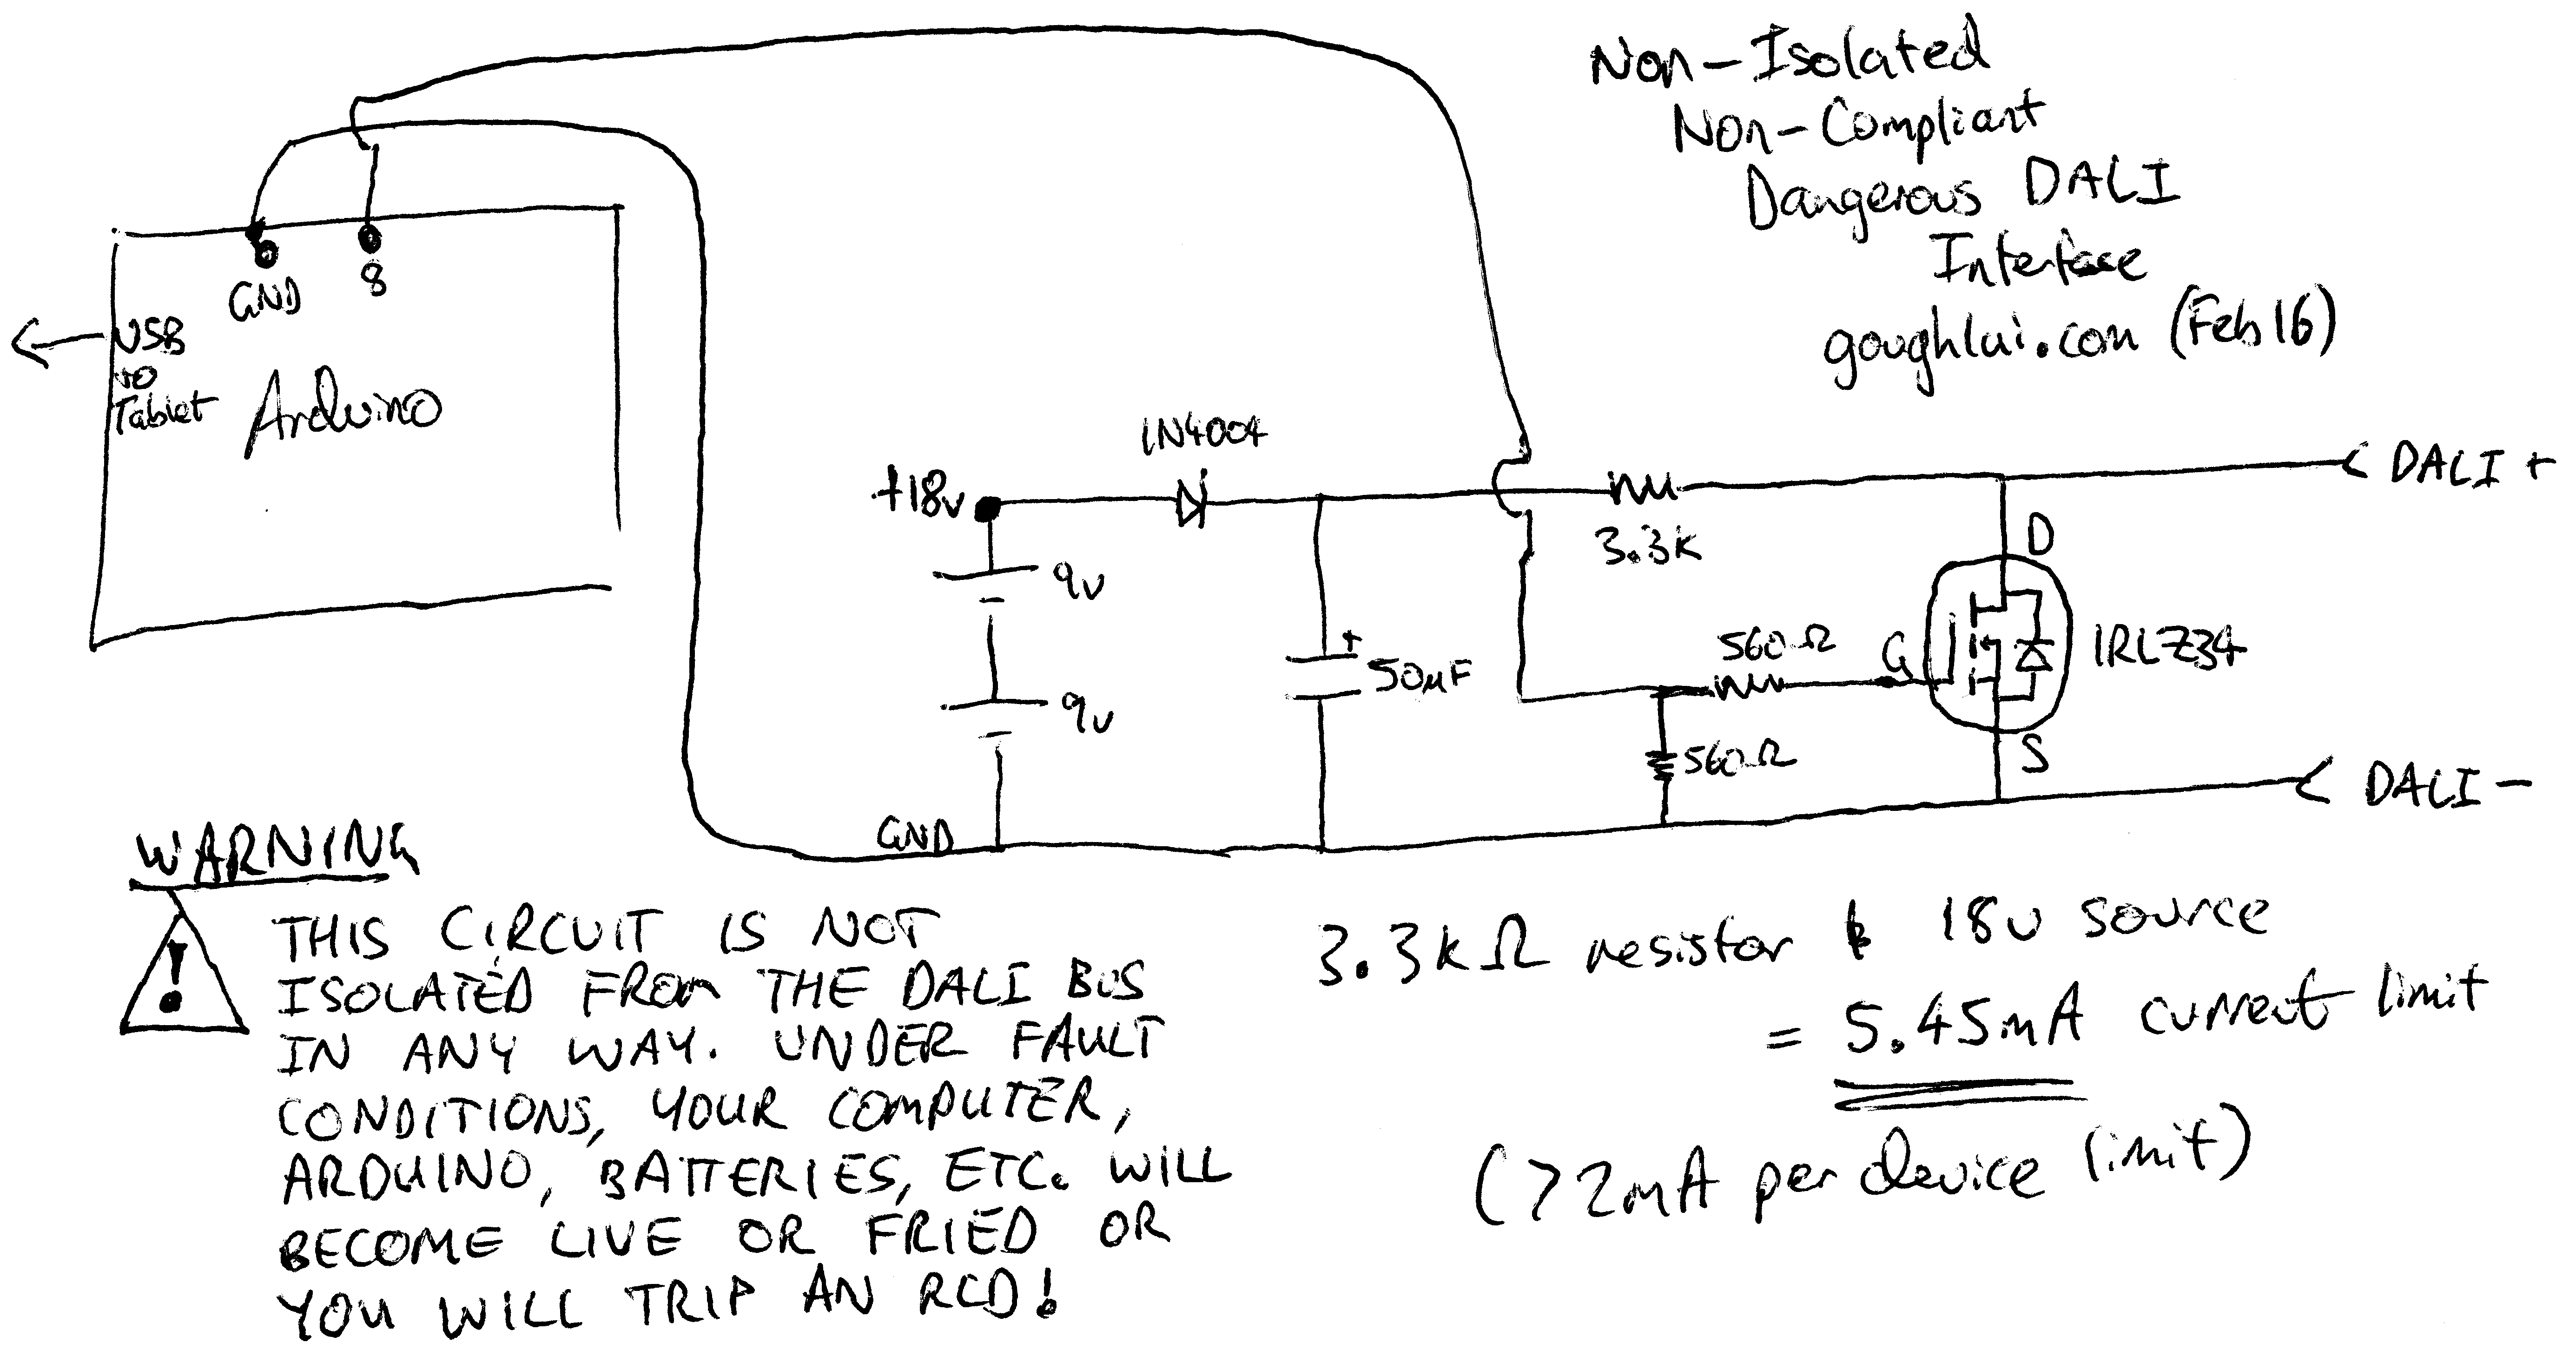 Non-Isolated
Non-Compliant
Dangerous DALI
Interface
goughlui.com (Feb 16)
GND 8
USB
to
Tablet
Arduino
1N4004
+18v
DALI +
3.3K
D
9v
560Ω
G
IRLZ34
+
50µF
9v
560Ω
S
DALI -
GND
WARNING
!
THIS CIRCUIT IS NOT
ISOLATED FROM THE DALI BUS
IN ANY WAY. UNDER FAULT
CONDITIONS, YOUR COMPUTER,
ARDUINO, BATTERIES, ETC. WILL
BECOME LIVE OR FRIED OR
YOU WILL TRIP AN RCD!
3.3kΩ resistor & 18v source
= 5.45mA current limit
(>2mA per device limit)